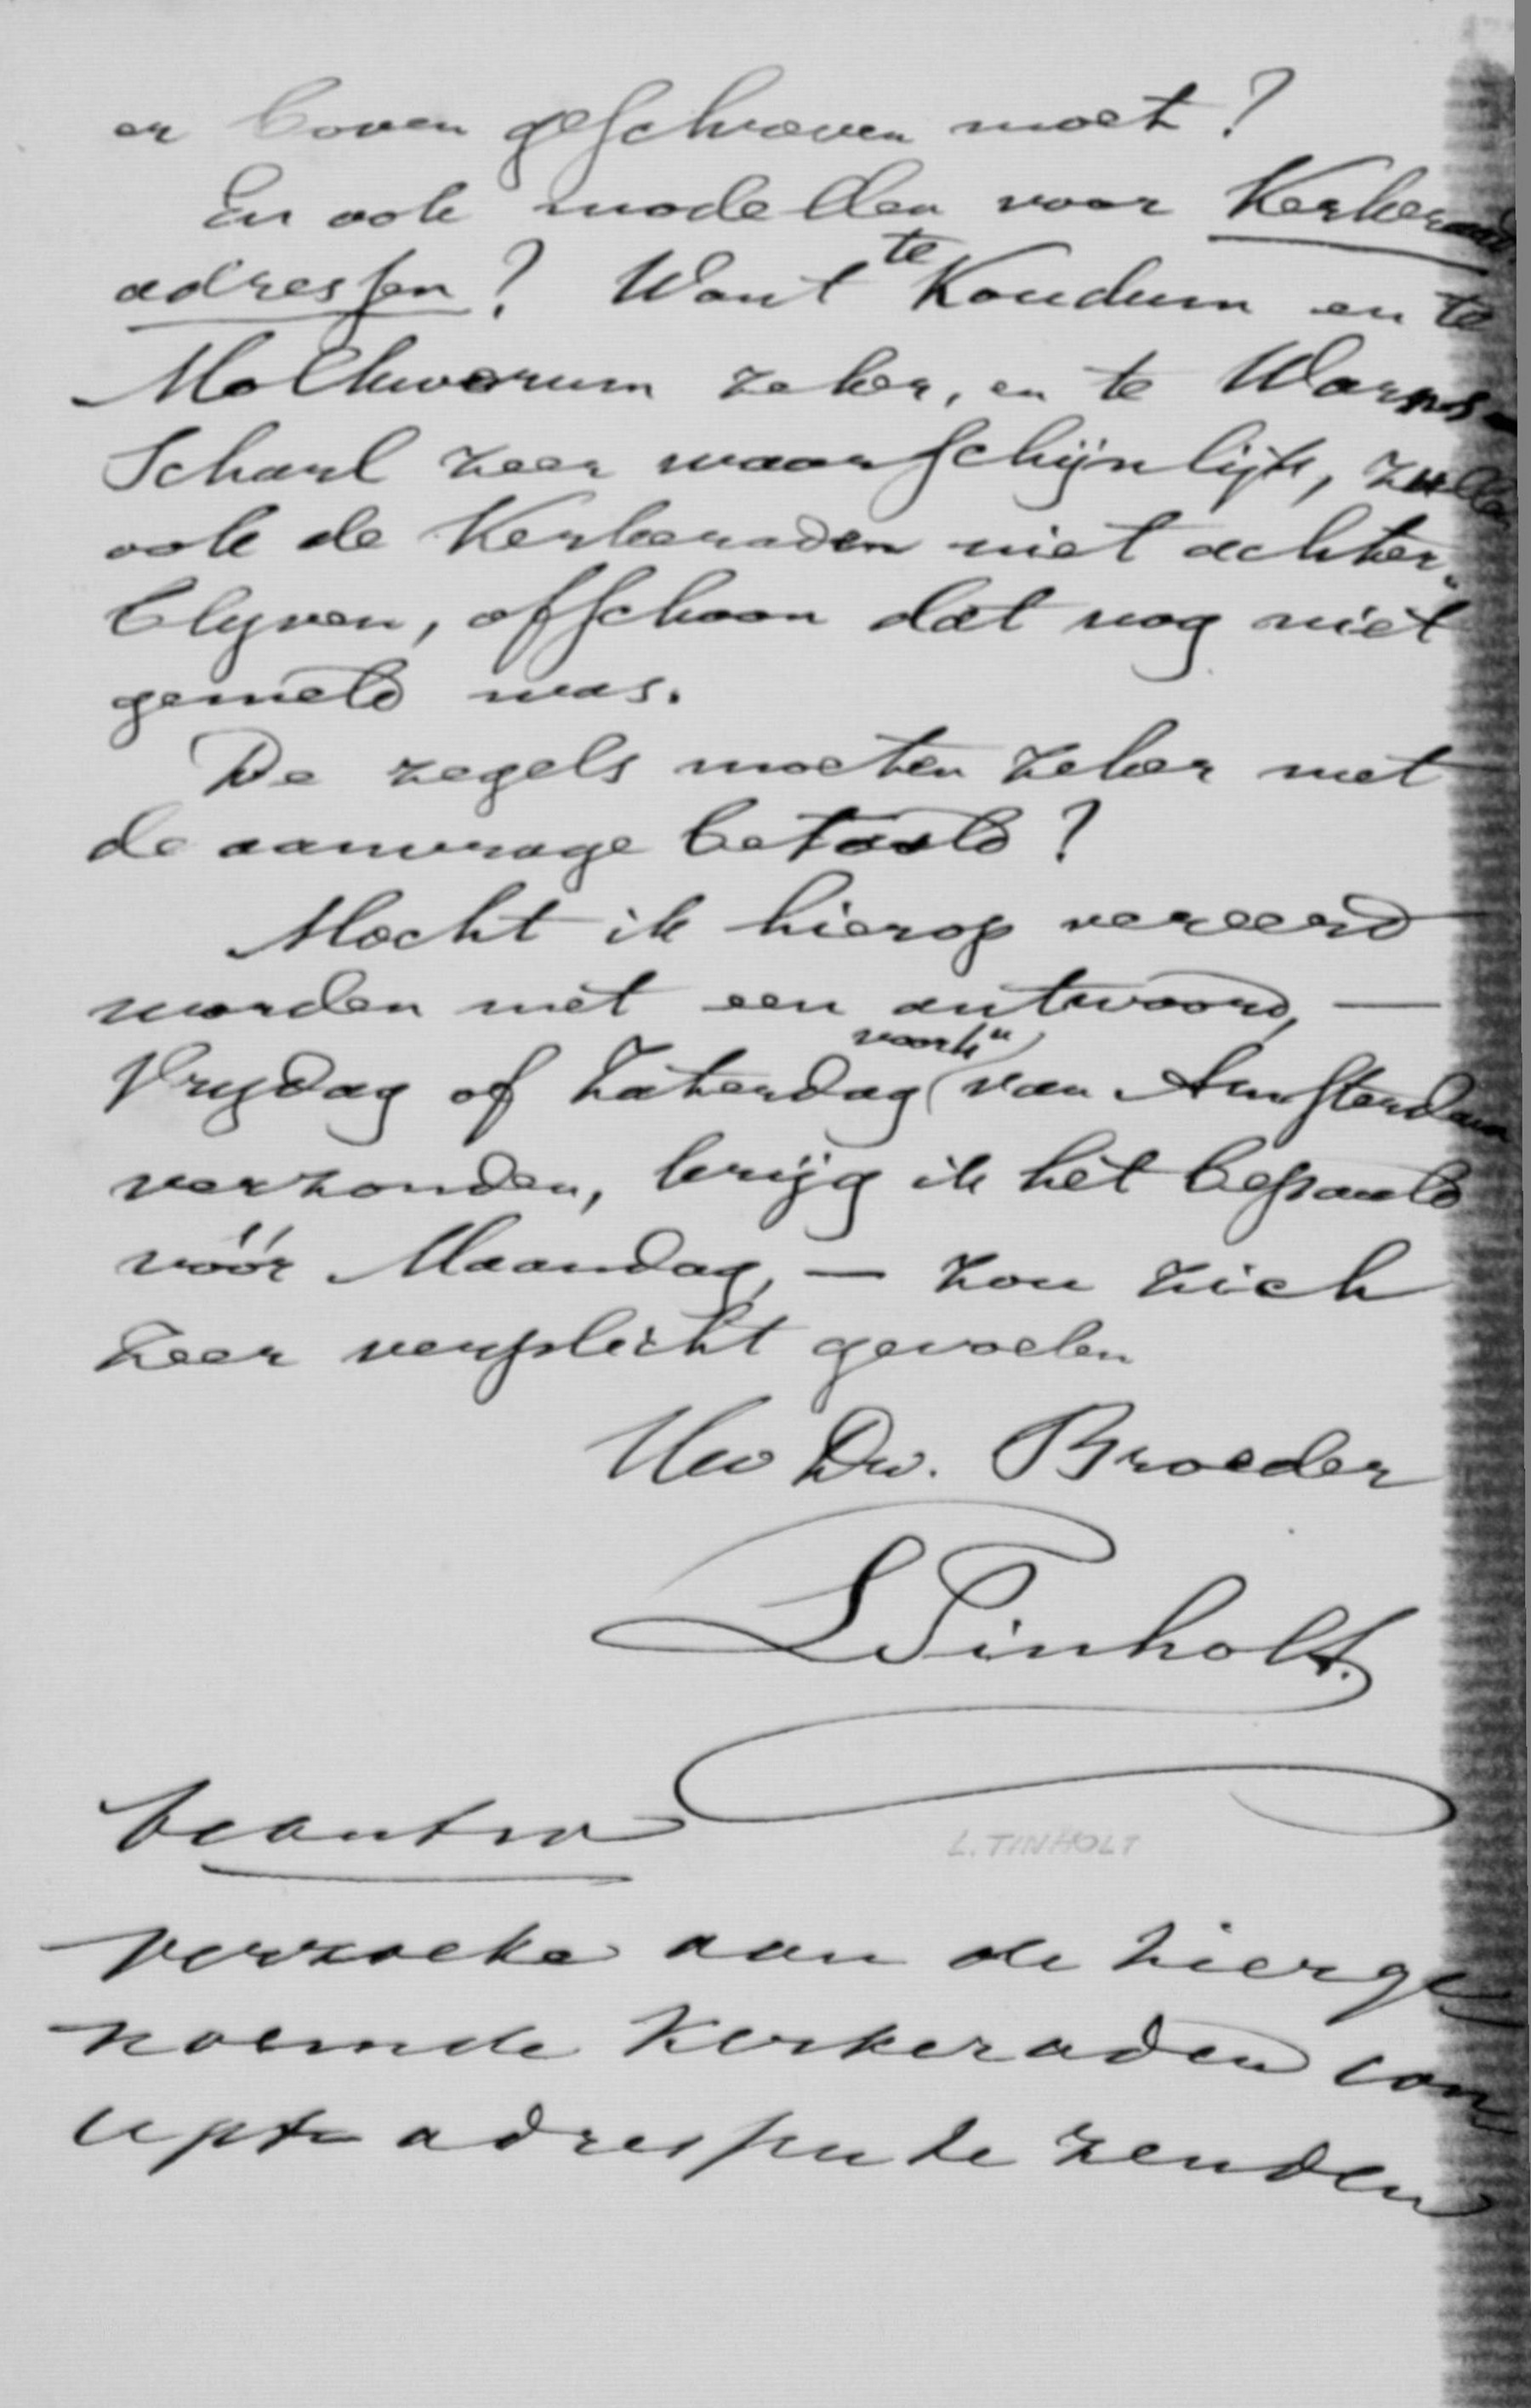 er boven geschreven moet?
En ook modellen voor Kerkeraads
adressen? Want te Koudum en te
Molkwerum zeker, en te Warns-
Scharl zeer waarschijnlijk, zullen
ook de Kerkeraden niet achter-
blyven, ofschoon dat nog niet
gemeld was.
De zegels moeten zeker met
de aanvrage betaald?
Mocht ik hierop vereerd
worden met een antwoord, —
Vrydag of Zaterdag voorm van Amsterdam
verzonden, krijg ik het bepaald
vóór Maandag, — zou zich
zeer verplicht gevoelen
Uw Dw. Broeder
L Tinholt.
beantw
L. TINHOLT
verzoeke aan de hierge
noemde Kerkeraden con
cept adressen te zenden